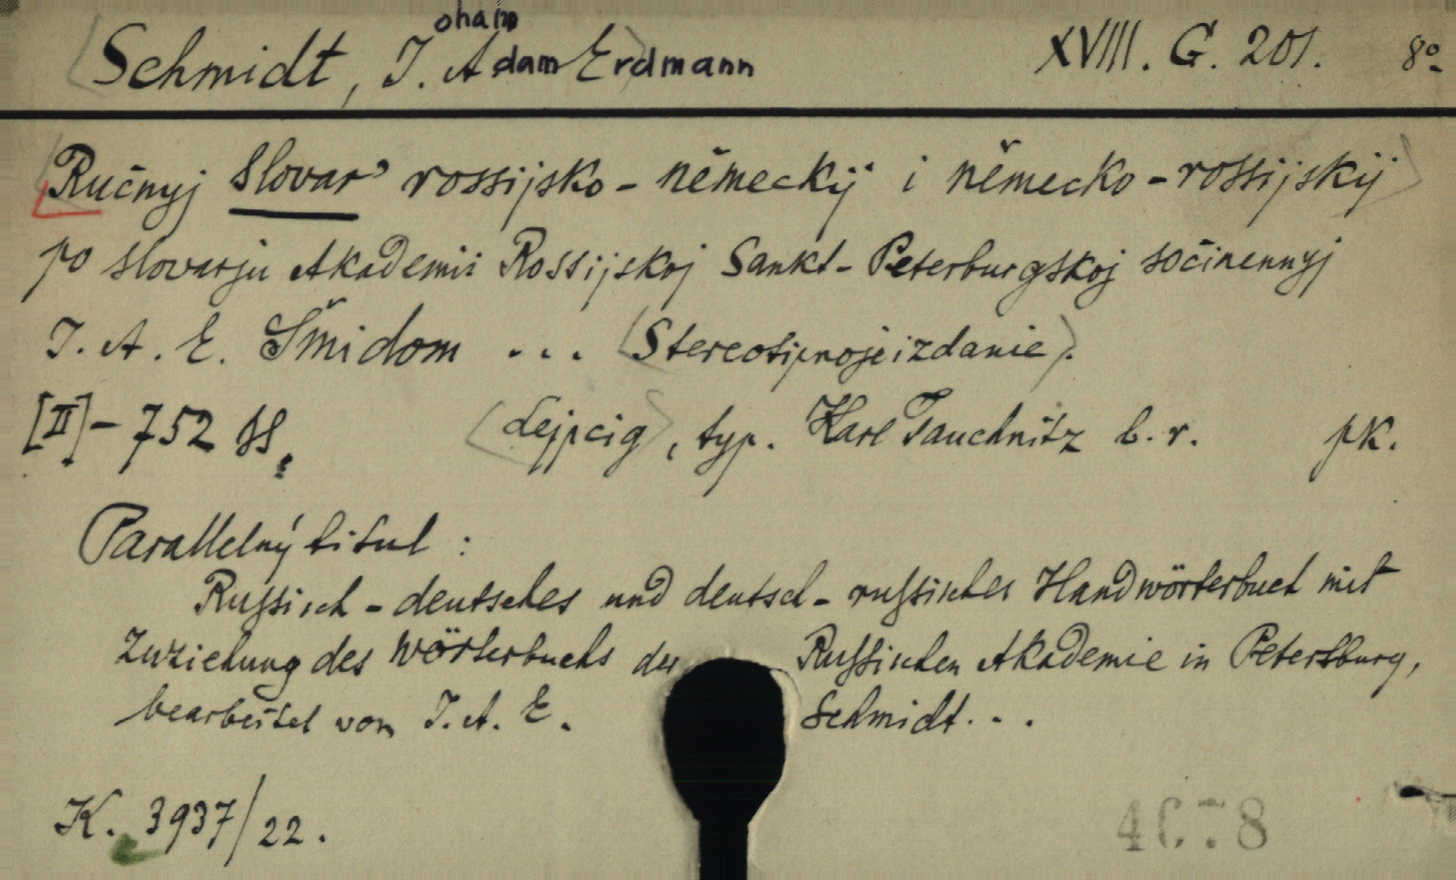 Schmidt, Johann Adam Erdmann XVIII. G. 201. 8°
Ručnyj slovar' rossijsko-německij i německo-rossijskij
po slovarju Akademii Rossijskoj Sankt-Peterburgskoj sočinennyj
I. A. E. Šmidom ... (Stereotipnoje izdanie).
[II]-752 ss. Lejpcig, typ. Karl Tauchnitz b. r. pk.
Parallelný titul:
Russisch-deutsches und deutsch-russisches Handwörterbuch mit
Zuziehung des Wörterbuchs der Russischen Akademie in Petersburg,
bearbeitet von J. A. E. Schmidt...
K. 3937/22.